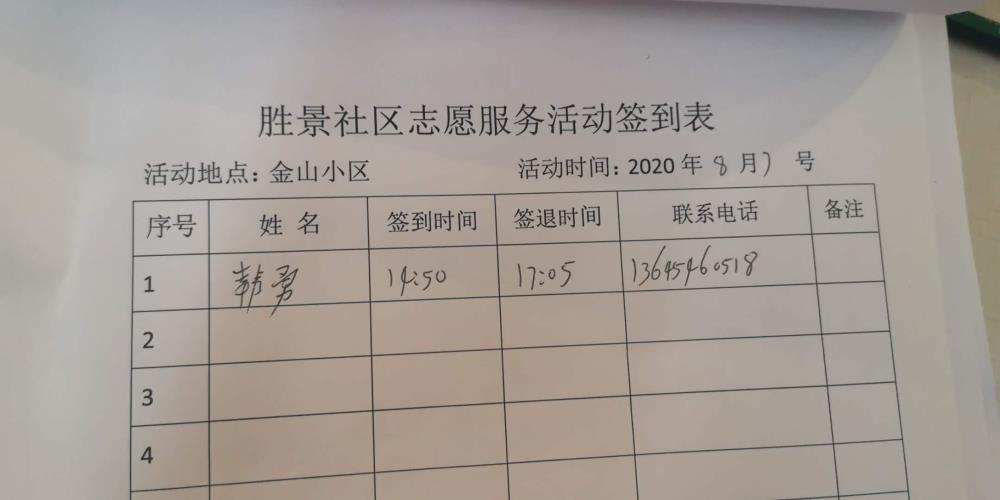 胜景社区志愿服务活动签到表
活动地点：金山小区 活动时间：2020 年 8 月 7 号
序号 姓 名 签到时间 签退时间 联系电话 备注
1 韩勇 14:50 17:05 13645460518
2
3
4